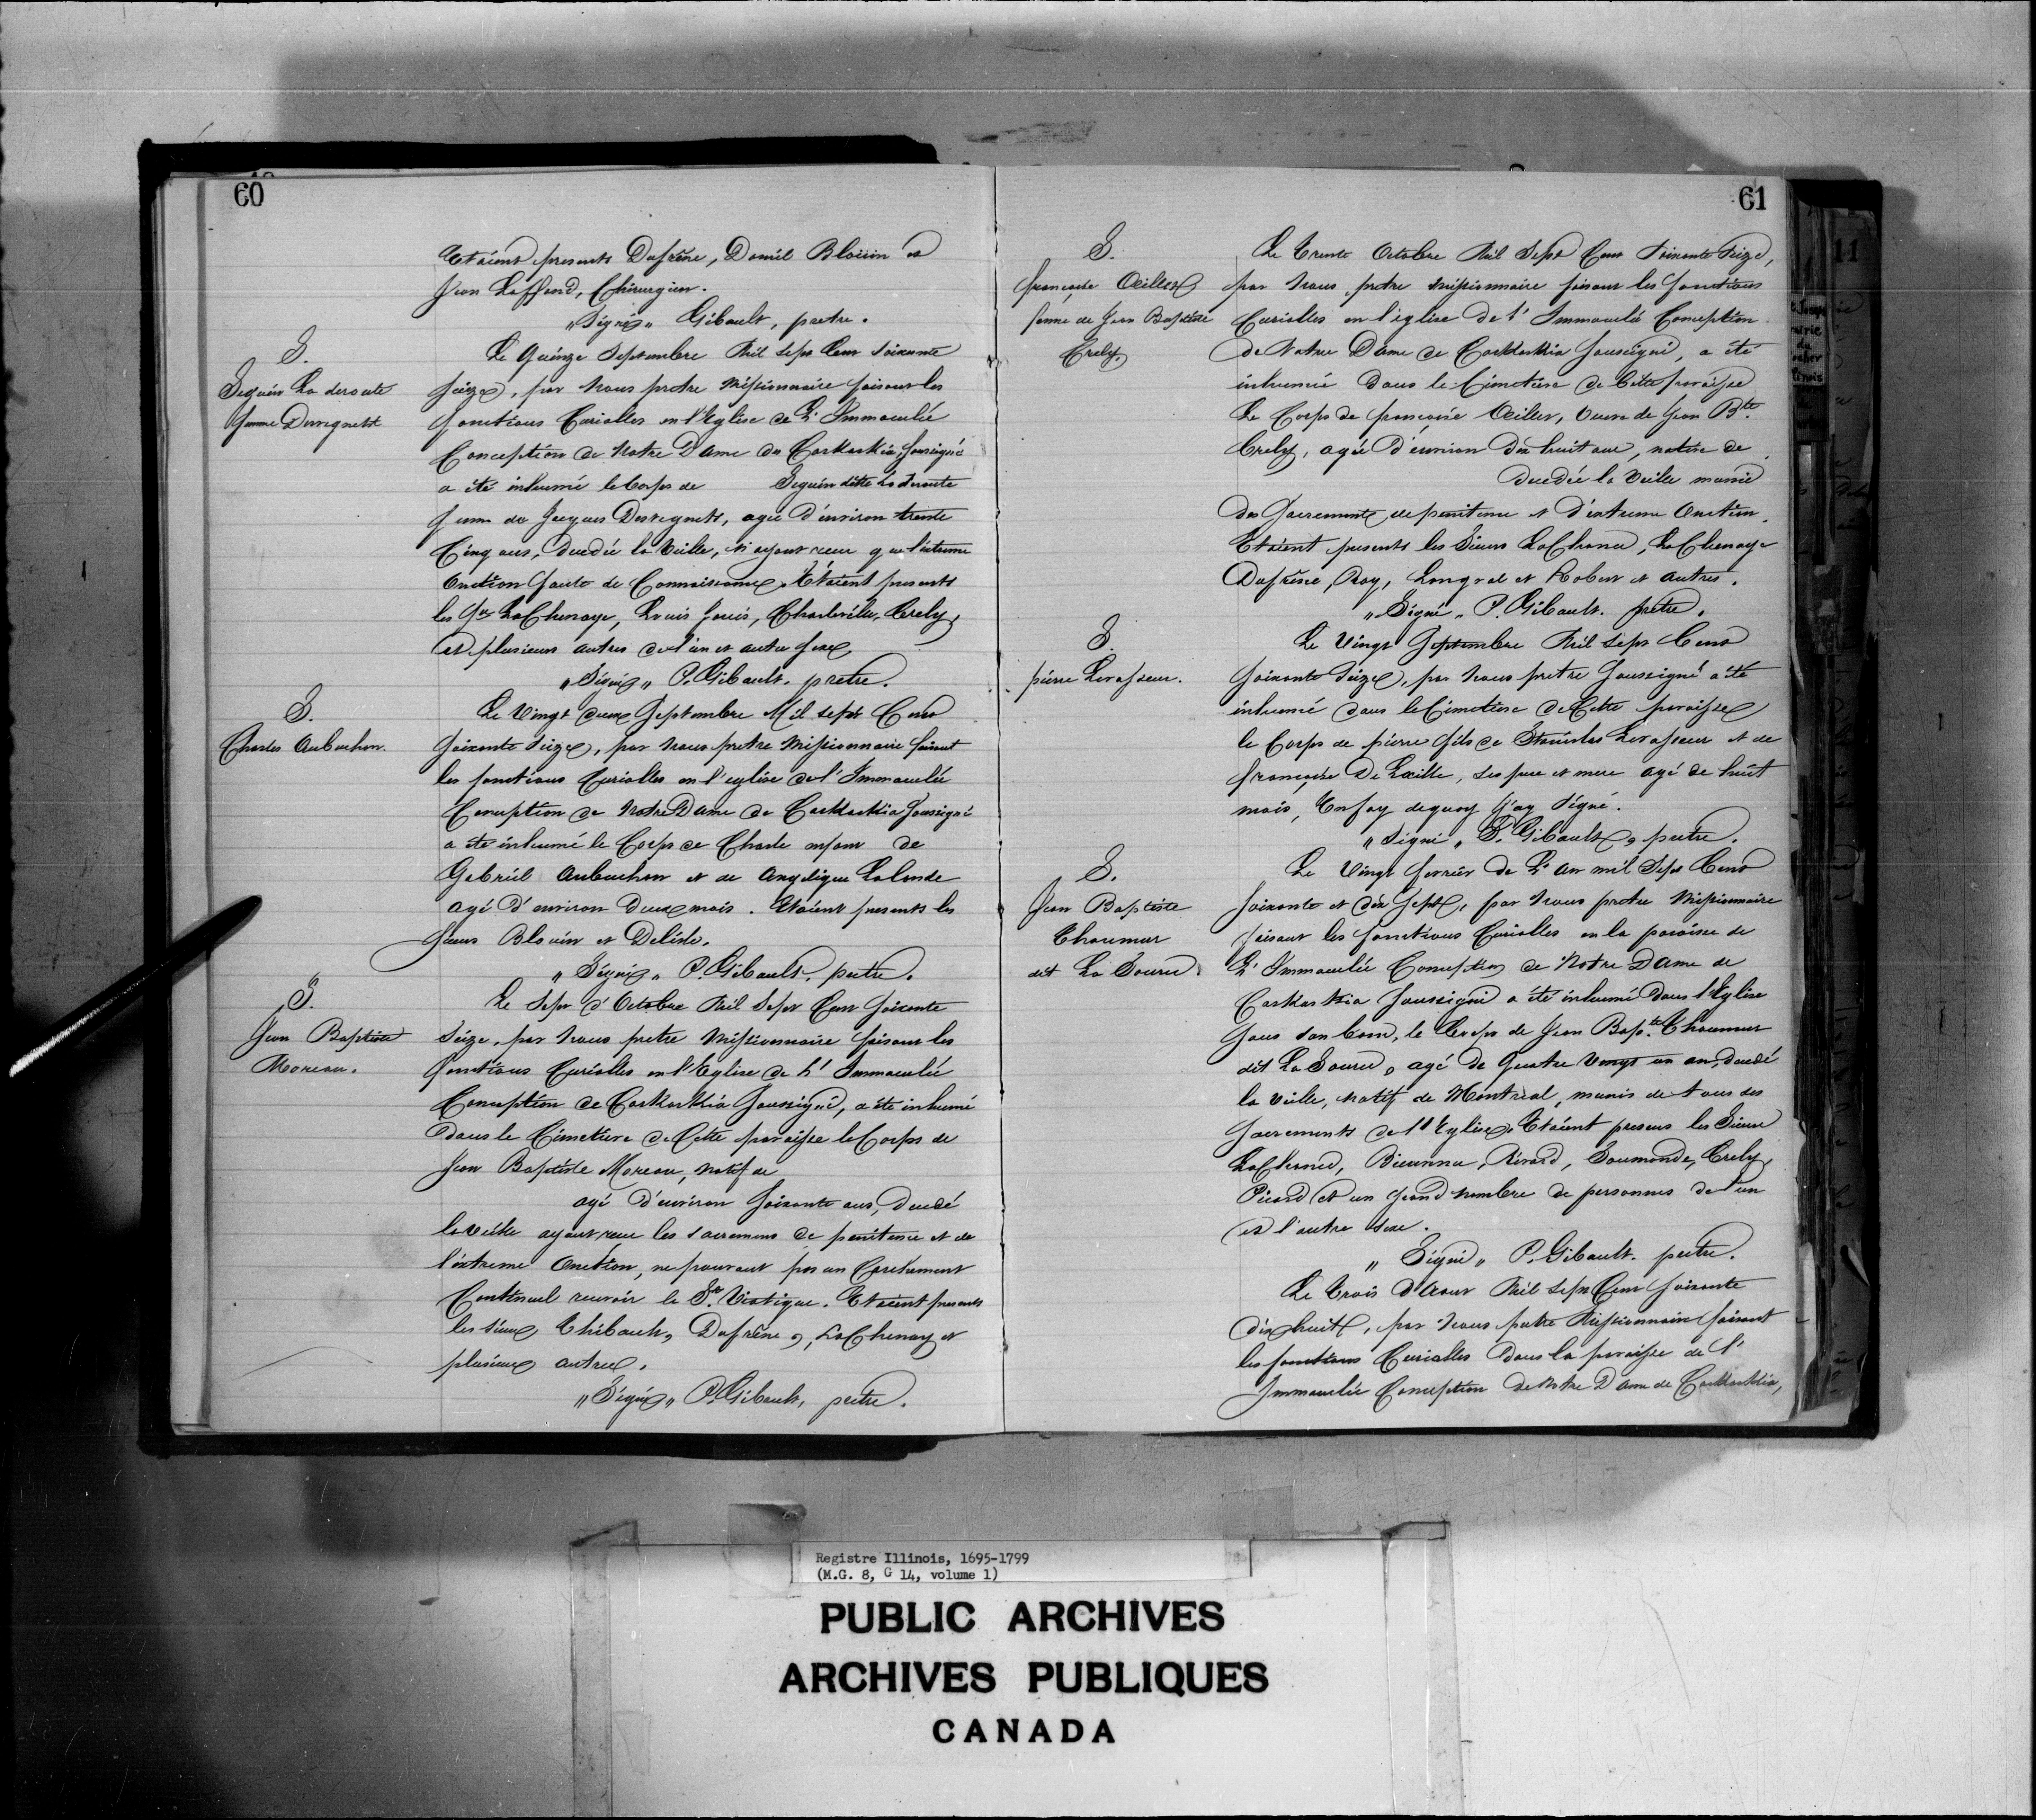 60
Etaient presents Dufrêne, Daniel Bloüin et
Jean Laffond, Chirurgien.
"Signé" Gibault, pretre.
S.
Seguin La deroute
femme Devegnets
Le Quinze Septembre Mil Sept Cent Soixante
Seize, par Nous pretre Missionnaire faisant les
fonctions Curialles en l'Eglise de L'Immaculée
Conception de Notre Dame des Caskaskia, Soussigné
a été inhumé le Corps de Seguin ditte La Deroute
femme de Jacques Devegnets, agée d'environ trente
Cinq ans, decedée la Veille, n'ayant recu que l'extreme
Onction faute de Connaissance. Etaient presents
les Srs LaChenaye, Louis , Charleville, Crely,
et plusieurs autres de l'un et autre sexe
"Signé" P. Gibault. pretre.
S.
Charles Aubuchon.
Le Vingt deux Septembre Mil sept Cent
Soixante Seize, par Nous pretre Missionnaire faisant
les fonctions Curialles en l'eglise de l'Immaculée
Conception de Notre Dame de Caskaskia Soussigné
a été inhumé le Corps de Charle enfant de
Gabriel Aubuchon et de Angelique Lalande
agé d'environ Deux mois. Etaient presents les
Sieurs Bloüin et Delisle.
"Signé" P. Gibault, pretre.
S.
Jean Baptiste
Moreau.
Le Sept d'Octobre Mil Sept Cent Soixante
Seize, par Nous pretre Missionnaire faisant les
fonctions Curialles en l'Eglise de L'Immaculée
Conception de Caskaskia Soussigné, a été inhumé
dans le Cimetiere de Cette paroisse le Corps de
Jean Baptiste Moreau, Natif de
agé d'environ Soixante ans, decedé
la Veille ayant recu les Sacremens de penitence et de
l'extreme Onction, ne pouvant pas un
Continuel recevoir le St. Viatique. Etaient presents
les Sieurs Thibault, Dufrêne, LaChenay et
plusieurs autres.
"Signé" P. Gibault, pretre.
61
S.
françoise Œiller
femme de Jean Baptiste
Crely.
Le Trente Octobre Mil Sept Cent Soixante Seize,
par Nous, pretre Missionnaire faisant les fonctions
Curialles en l'église de l'Immaculé Conception
de Notre Dame de Caskaskia Soussigné, a été
inhumée dans le Cimetiere de Cette paroisse
Le Corps de françoise Œiller, Veuve de Jean Bte.
Crely, agée d'environ dix huit ans, native de
decedée la Veille munie
des Sacrements de penitence et d'extreme Onction.
Etaient presents les Sieurs LaChance, LaChenaye
Dufrêne, Roy, Longval et Robert et autres.
"Signé" P. Gibault. pretre.
S.
pierre Levasseur.
Le Vingt Septembre Mil Sept Cent
Soixante Seize, par Nous pretre Soussigné a été
inhumé dans le Cimetiere de Cette paroisse
le Corps de pierre fils de Stanislas Levasseur et de
françoise De Lisle, ses pere et mere agé de huit
mois, En foy de quoy J'ay Signé.
"Signé" P. Gibault, pretre.
S.
Jean Baptiste
Thaumur
dit La Source
Le Vingt fevrier de L'an mil Sept Cent
Soixante et dix Sept, par Nous pretre Missionnaire
faisant les fonctions Curialles en la paroisse de
L'Immaculée Conception de Notre Dame de
Caskaskia Soussigné a été inhumé dans l'Eglise
Sous son banc, le Corps de Jean Bapte. Thaumur
dit La Source, agé de Quatre Vingt un an, decedé
la veille, Natif de Montréal, munis de tous ses
Sacrements de l'Eglise. Etaient presens les Sieurs
LaChance, Bienvenu, Rivard, Doumonde, Crely,
Picard et un grand nombre de personnes de l'un
et l'autre Sexe.
"Signé" P. Gibault. pretre.
Le Trois d'Aout Mil Sept Cent Soixante
dix huit, par Nous pretre Missionnaire faisant
les fonctions Curialles dans la paroisse de l'
Immaculée Conception de Notre Dame de Caskaskia,
Registre Illinois, 1695-1799
(M.G. 8, G 14, volume 1)
PUBLIC ARCHIVES
ARCHIVES PUBLIQUES
CANADA